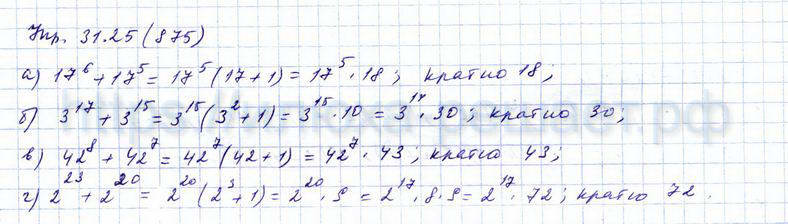 Упр. 31.25 (875)
а) 17⁶ + 17⁵ = 17⁵ (17 + 1) = 17⁵ · 18 ; кратно 18 ;
б) 3¹⁷ + 3¹⁵ = 3¹⁵ (3² + 1) = 3¹⁵ · 10 = 3¹⁴ · 30 ; кратно 30 ;
в) 42⁸ + 42⁷ = 42⁷ (42 + 1) = 42⁷ · 43 ; кратно 43 ;
г) 2²³ + 2²⁰ = 2²⁰ (2³ + 1) = 2²⁰ · 9 = 2¹⁷ · 8 · 9 = 2¹⁷ · 72 ; кратно 72 .